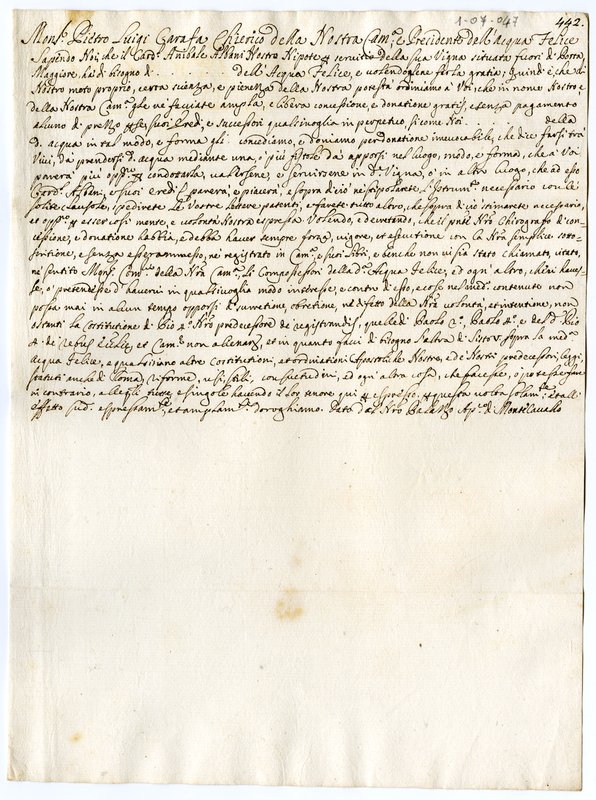 1-07-047 442.
Mons.r Pietro Luigi Carafa Chierico della Nostra Cam.a e Presidente dell'Acqua Felice
Sapendo Noi che il Card.e Anibale Albani Nostro Nipote p servitio della sua Vigna situata fuori di Porta
Maggiore, hà di bisogno di . . . . . . dell'Acqua Felice, e volendogliene far la gratia; Quindi è, che di
Nostro moto proprio, certa scienza, e pienezza della Nostra potestà ordiniamo à Voi, che in nome Nostro e
della Nostra Cam.a gle ne facciate ampla, e libera concessione, e donatione gratis, e senza pagamento
alcuno di prezzo p se, suoi Eredi, e successori qualsivoglia in perpetuo, sicome Noi . . . . . della
d. acqua in tal modo, e forma gli concediamo, e doniamo per donatione irrevocabile, che dice farsi trà
Vivi, da prendersi d. acqua mediante una, ò più fistole da apporsi nel luogo, modo, e forma, che à Voi
parerà più opp.no p condottarla, valersene, e servirsene in d.a Vigna, ò in altro luogo, che ad esso
Card.e Albani, e suoi Eredi parerà, e piacerà, e sopra di ciò ne stipolarete l'Istrum.to necessario con le
solite clausole, spedirete le Vostre lettere patenti, e farete tutto altro, che sopra di ciò stimarete necessario,
et opp.no p esser così mente, e volontà Nostra espressa. Volendo, e decretando, che il pnte Nro Chirografo di con-
cessione, e donatione habbia, e debba haver sempre forza, vigore, et essecutione con la Nra semplice sotto-
scrittione, e senza esser ammesso, nè registrato in Cam.a e suoi libri, e benche non vi sia stato chiamato, citato,
nè sentito Mons.r Com.rio della Nra Cam.a li Compossessori della d.a Acqua Felice, ed ogn'altro, che vi haves-
se, ò pretendesse d'havervi in qualsivoglia modo interesse, e contro di esso, e cose nel med.o contenute non
possa mai in alcun tempo opporsi di surretione, obretione, nè difetto della Nra volontà, et intentione, non
ostanti la Costitutione di Pio 4.o Nro predecessore de registrandis, quelle di Paolo 2.o, Paolo 4.o e del d.o Pio
4. de rebus Ecclie, et Cam.a non alienanz, et in quanto facci di bisogno l'altra di Sisto V. sopra la med.a
Acqua Felice, e qualsisiano altre Costitutioni, et ordinationi Apostoliche Nostre, e de Nostri predecessori, leggi,
statuti anche di Roma, riforme, usi, stili, consuetudini, ed ogni altra cosa, che facesse, ò potesse fare
in contrario, alle quali tutte, e singole havendo il lor tenore qui p espresso, p questa volta solam.te, et all'
effetto sud. espressam.te, et amplam.te deroghiamo. Dato dal Nro Palazzo Ap.co di Monte Cavallo